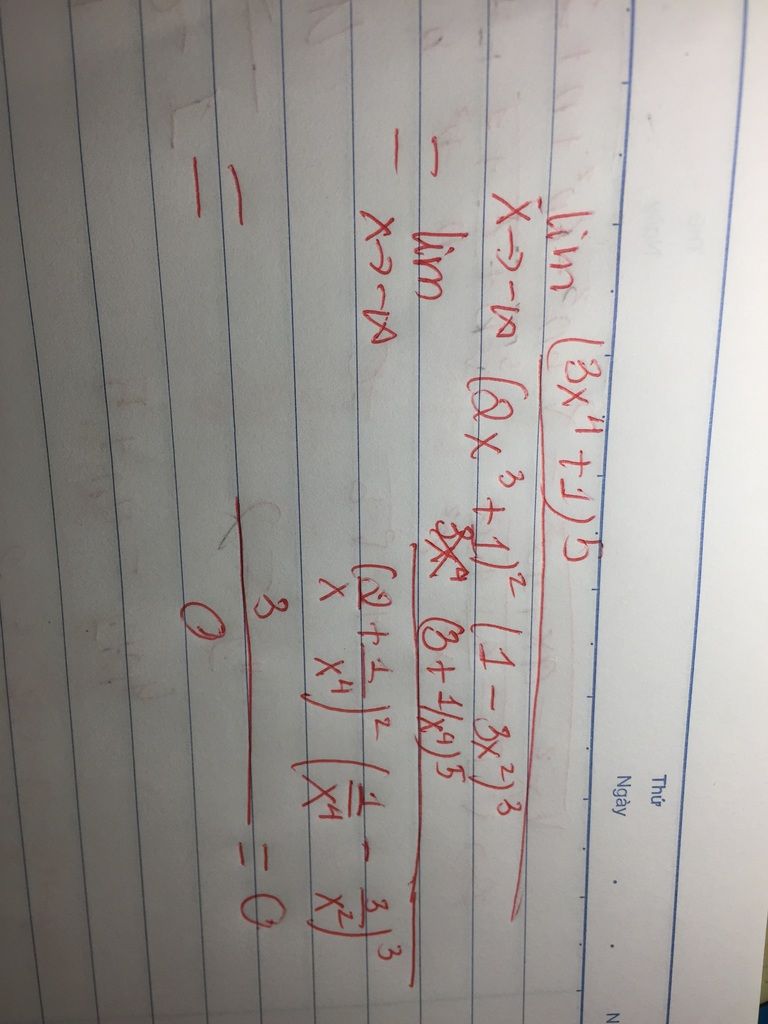 Thứ
Ngày . .
N
lim (3x⁴ + 1)⁵
x→-∞ (2x³ + 1)² (1 - 3x²)³
= lim (3 + 1/x⁴)⁵
x→-∞ (2/x + 1/x⁴)² (1/x⁴ - 3/x²)³
= 3/0 = 0